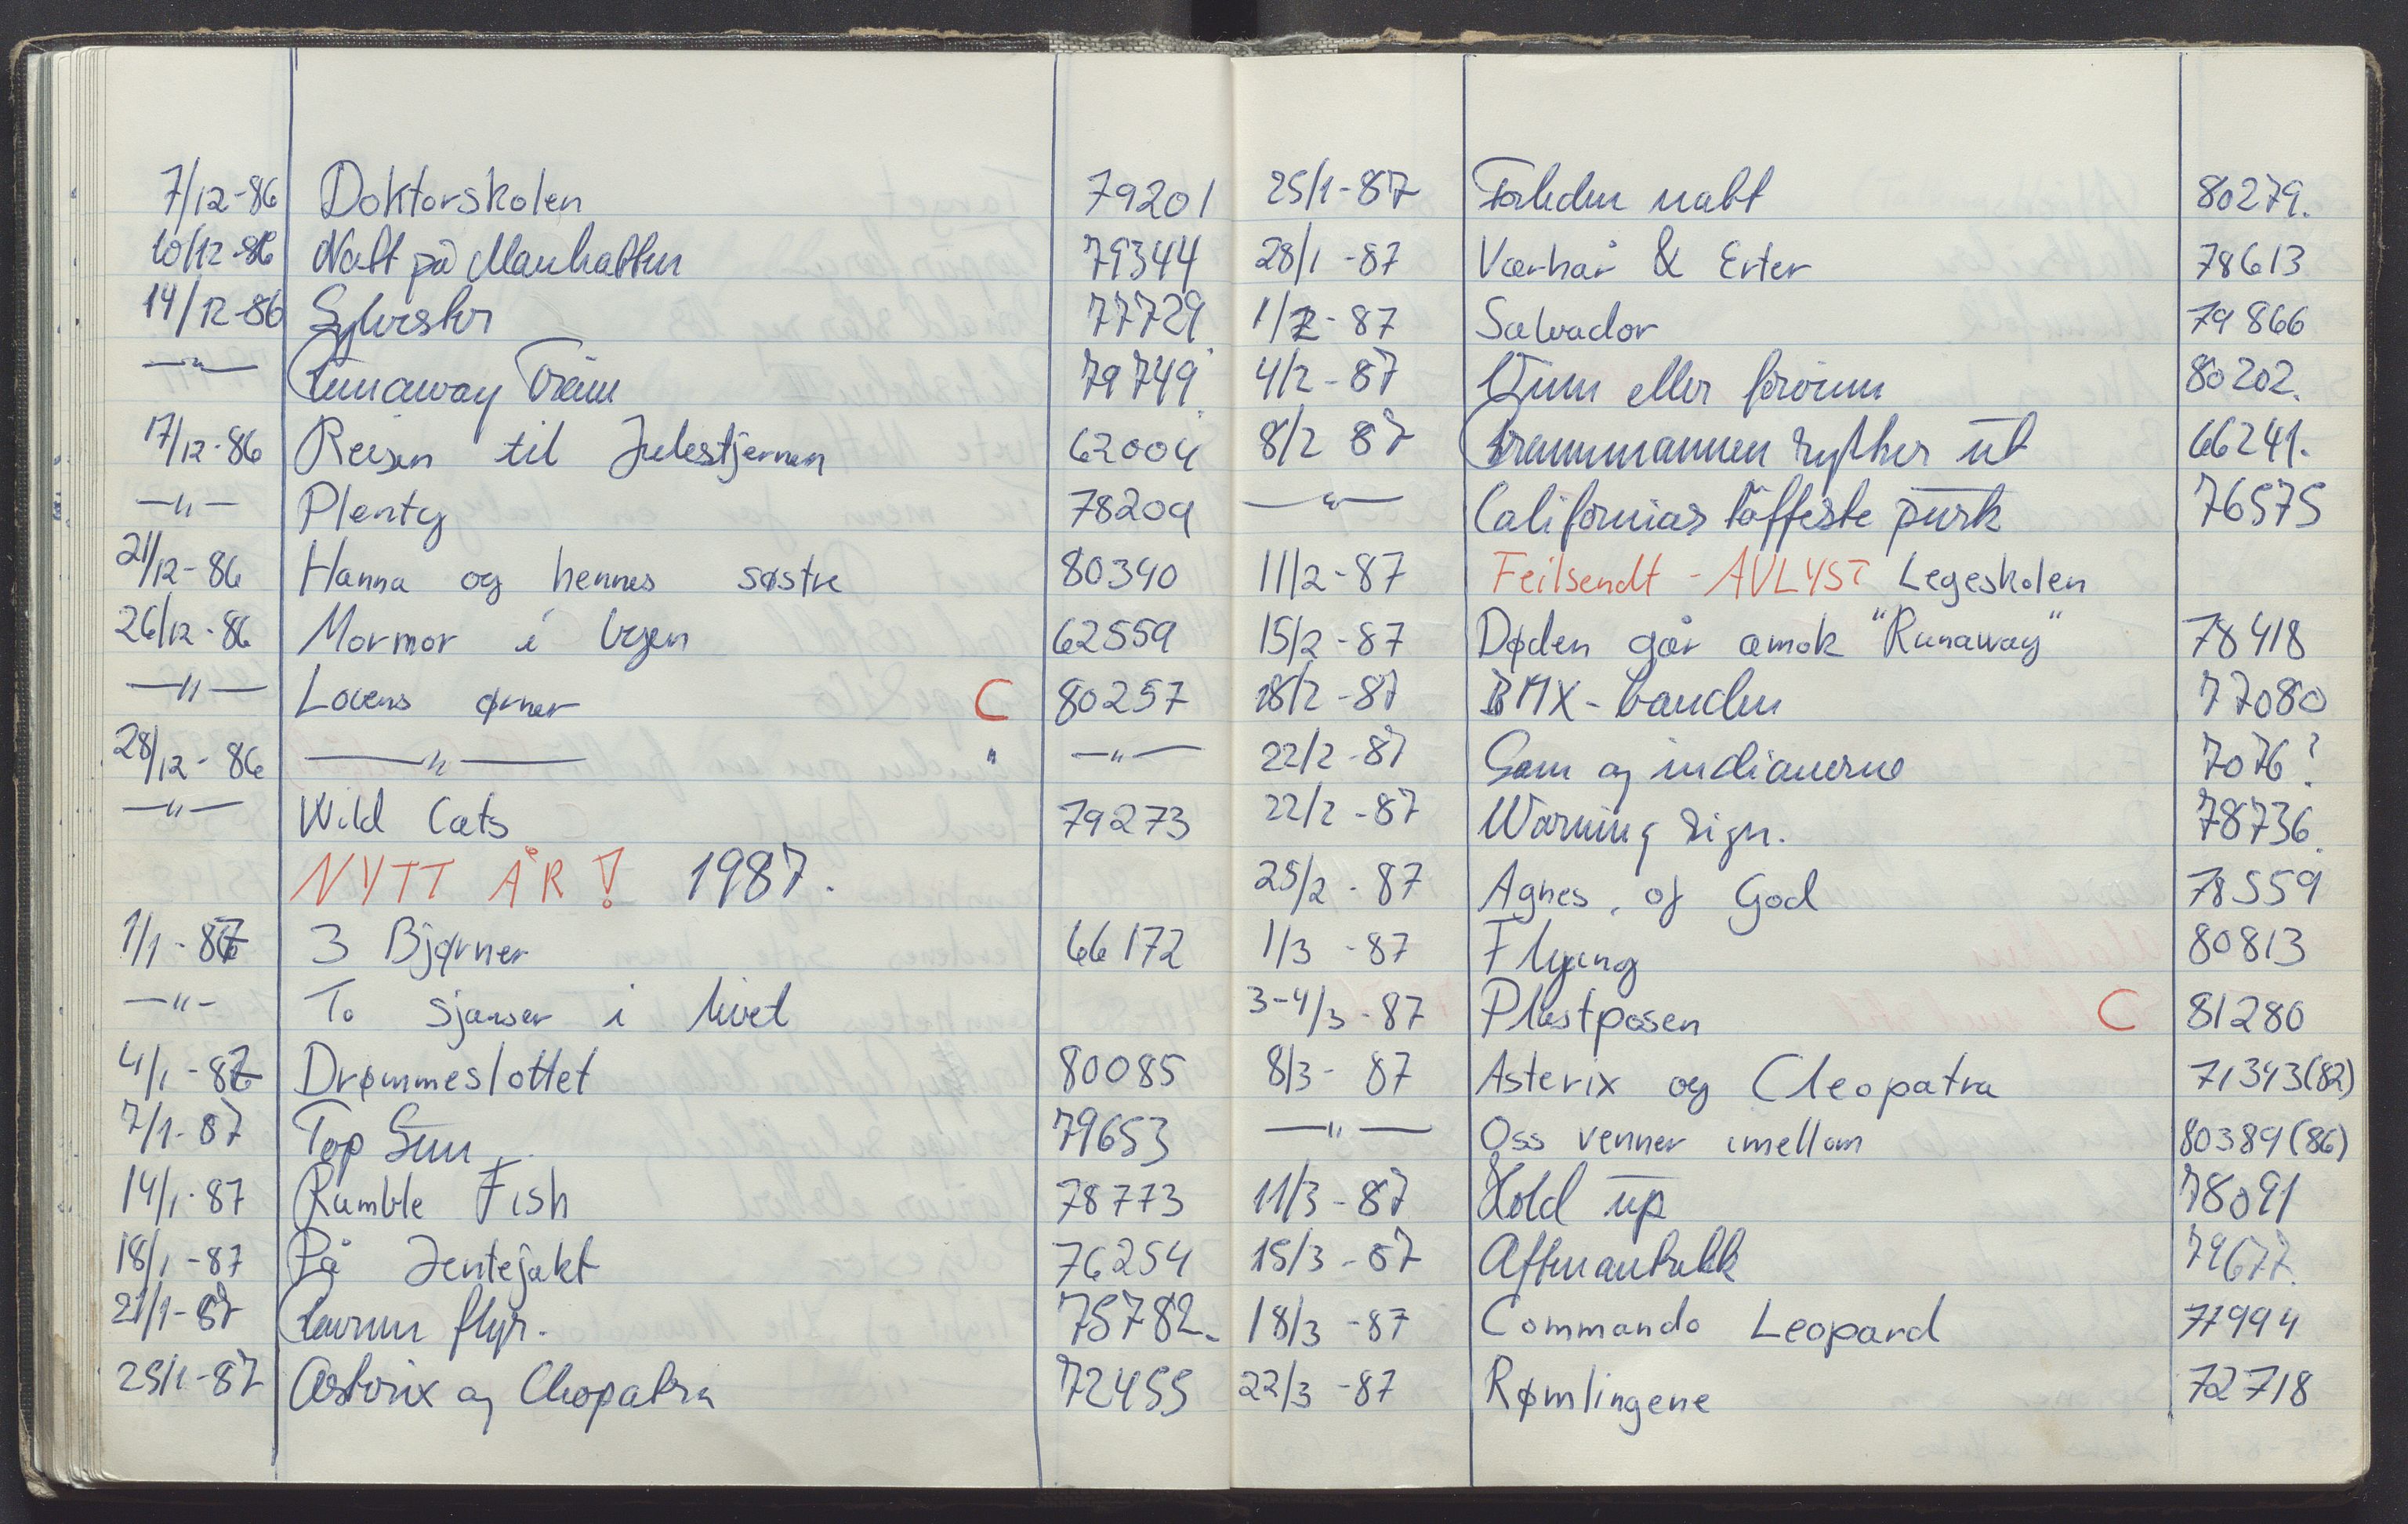 7/12-86 Doktorskolen 79201
10/12-86 Natt på Manhatten 79344
14/12-86 Sylvester 77729
—"— Runaway Train 79749
17/12-86 Reisen til Julestjernen 62004
—"— Plenty 78209
21/12-86 Hanna og hennes søstre 80340
26/12-86 Mormor i byen 62559
—"— Lovens ørner C 80257
28/12-86 —"— " —"—
—"— Wild Cats 79273
NYTT ÅR! 1987.
1/1-87 3 Bjørner 66172
—"— To sjanser i livet
4/1-87 Drømmeslottet 80085
7/1-87 Top Gun 79653
14/1-87 Rumble Fish 78773
18/1-87 På Jentejakt 76254
21/1-87 Ravnen flyr. 75782.
25/1-87 Asterix og Cleopatra 72455
25/1-87 Forleden natt 80279.
28/1-87 Værhår & Erter 78613
1/2-87 Salvador 79866
4/2-87 Vinn eller forsvinn 80202.
8/2 87 Brannmannen rykker ut 66241.
—"— Californias tøffeste purk 76575
11/2-87 Feilsendt - AVLYST Legeskolen
15/2-87 Døden går amok "Runaway" 78418
18/2-87 BMX-banden 77080
22/2-87 Sam og indianerne 7076?
22/2-87 Warning sign. 78736.
25/2-87 Agnes, of God 78559
1/3-87 Flyang 80813
3-4/3-87 Plastposen C 81280
8/3-87 Asterix og Cleopatra 71343(82)
—"— Oss venner imellom 80389(86)
11/3-87 Hold up 78091
15/3-87 Aftenantrekk 79677.
18/3-87 Commando Leopard 77994
22/3-87 Rømlingene 72718